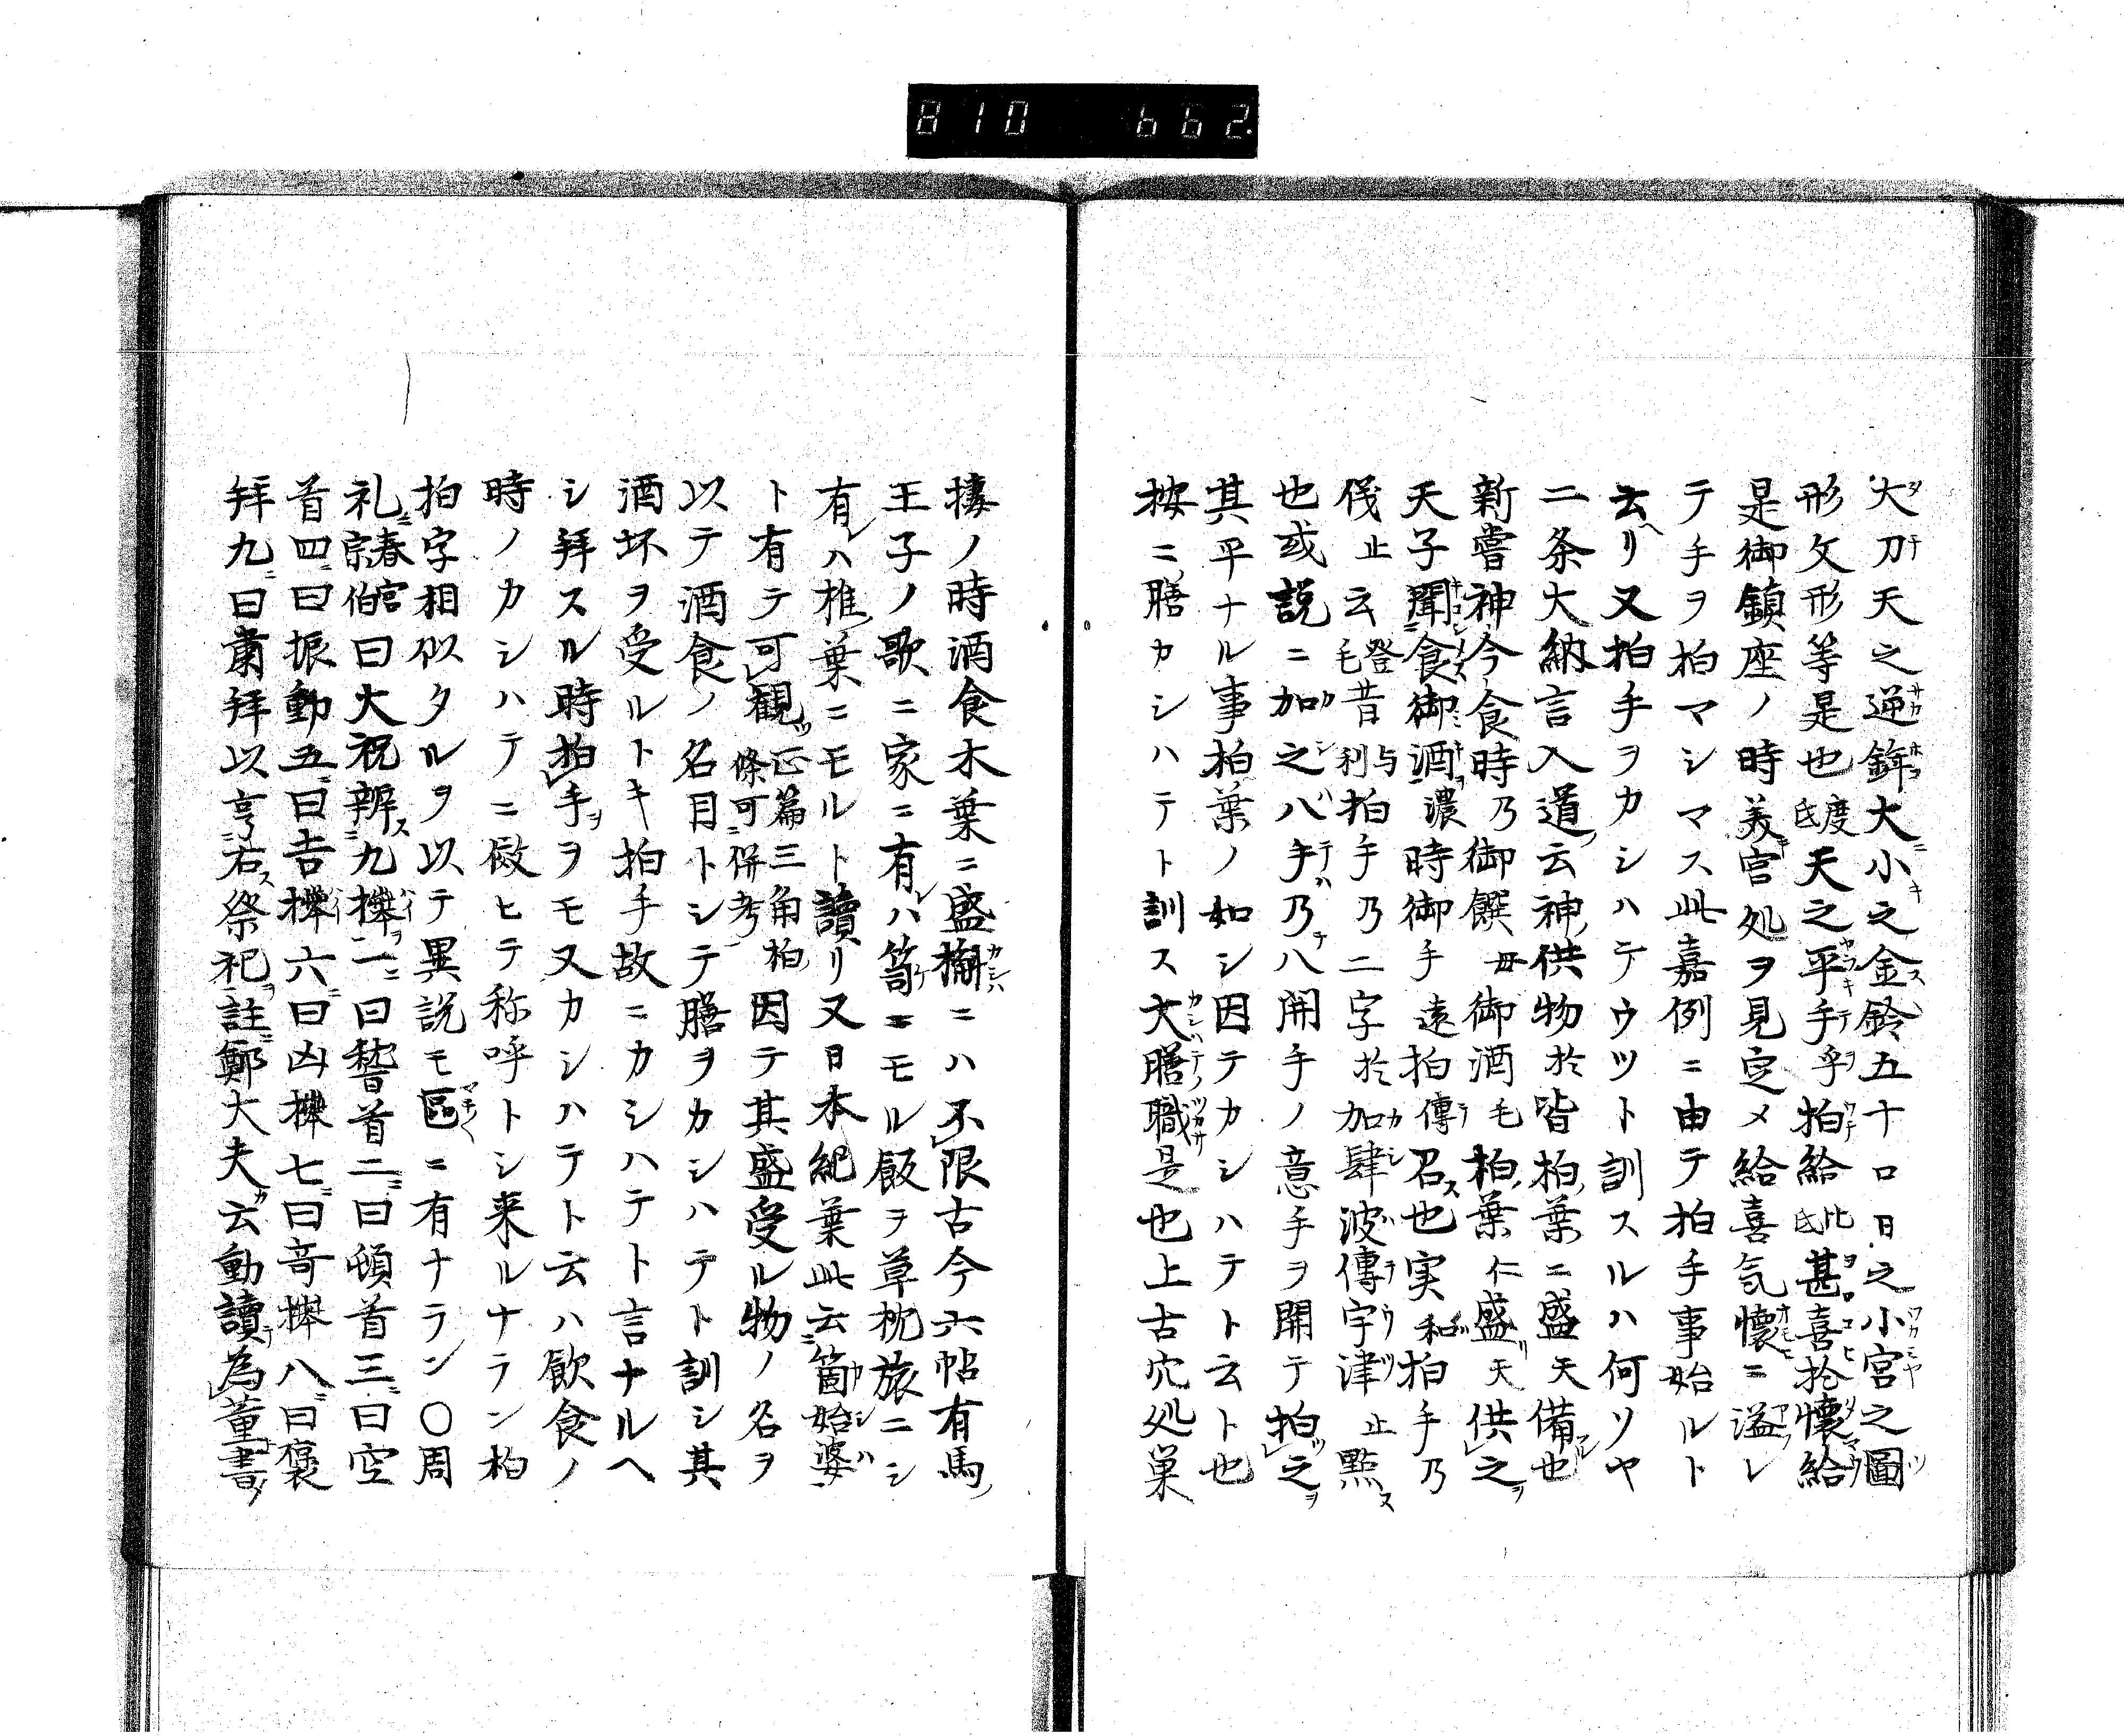 810 662.
大刀天之逆鉾大小之金鈴五十口日之小宮之圖
形文形等是也度氐天之平手乎拍給比氐甚喜於懐給
是御鎮座ノ時美宮処ヲ見定メ給喜気懐ニ溢レ
テ手ヲ拍マシマス此嘉例ニ由テ拍手事始ルト
云リ又拍手ヲカシハテウツト訓スルハ何ソヤ
二条大納言入道云神供物於皆柏葉ニ盛天備也
新嘗神今食時乃御饌毋御酒毛柏葉仁盛天供之
天子聞食御酒濃時御手遠拍傳召也実和拍手乃
伐止云登毛昔与利拍手乃二字於加肆波傳宇津止點
也或説ニ加之八手乃八開手ノ意手ヲ開テ拍之
其平ナル事柏葉ノ如シ因テカシハテト云ト也
按ニ膳カシハテト訓ス大膳職是也上古穴処巣
摟ノ時酒食木葉ニ盛槲ニハ不限古今六帖有馬
王子ノ歌ニ家ニ有ハ笥ニモル飯ヲ草枕旅ニシ
有ハ椎葉ニモルト讀リ又日本紀葉此云箇始婆
ト有テ可観正篇三角柏條可併考因テ其盛受ル物ノ名ヲ
以テ酒食ノ名目トシテ膳ヲカシハテト訓シ其
酒坏ヲ受ルトキ拍手故ニカシハテト言ナルヘ
シ拜スル時拍手ヲモ又カシハテト云ハ飲食ノ
時ノカシハテニ傚ヒテ称呼トシ来ルナラン柏
拍字相似タルヲ以テ異説モ區ニ有ナラン〇周
礼春官宗伯曰大祝辨九𢷎一曰䭬首二曰頓首三曰空
首四曰振動五曰吉𢷎六曰凶𢷎七曰奇𢷎八曰褒
拜九曰肅拜以享右祭祀註鄭大夫云動讀為董書